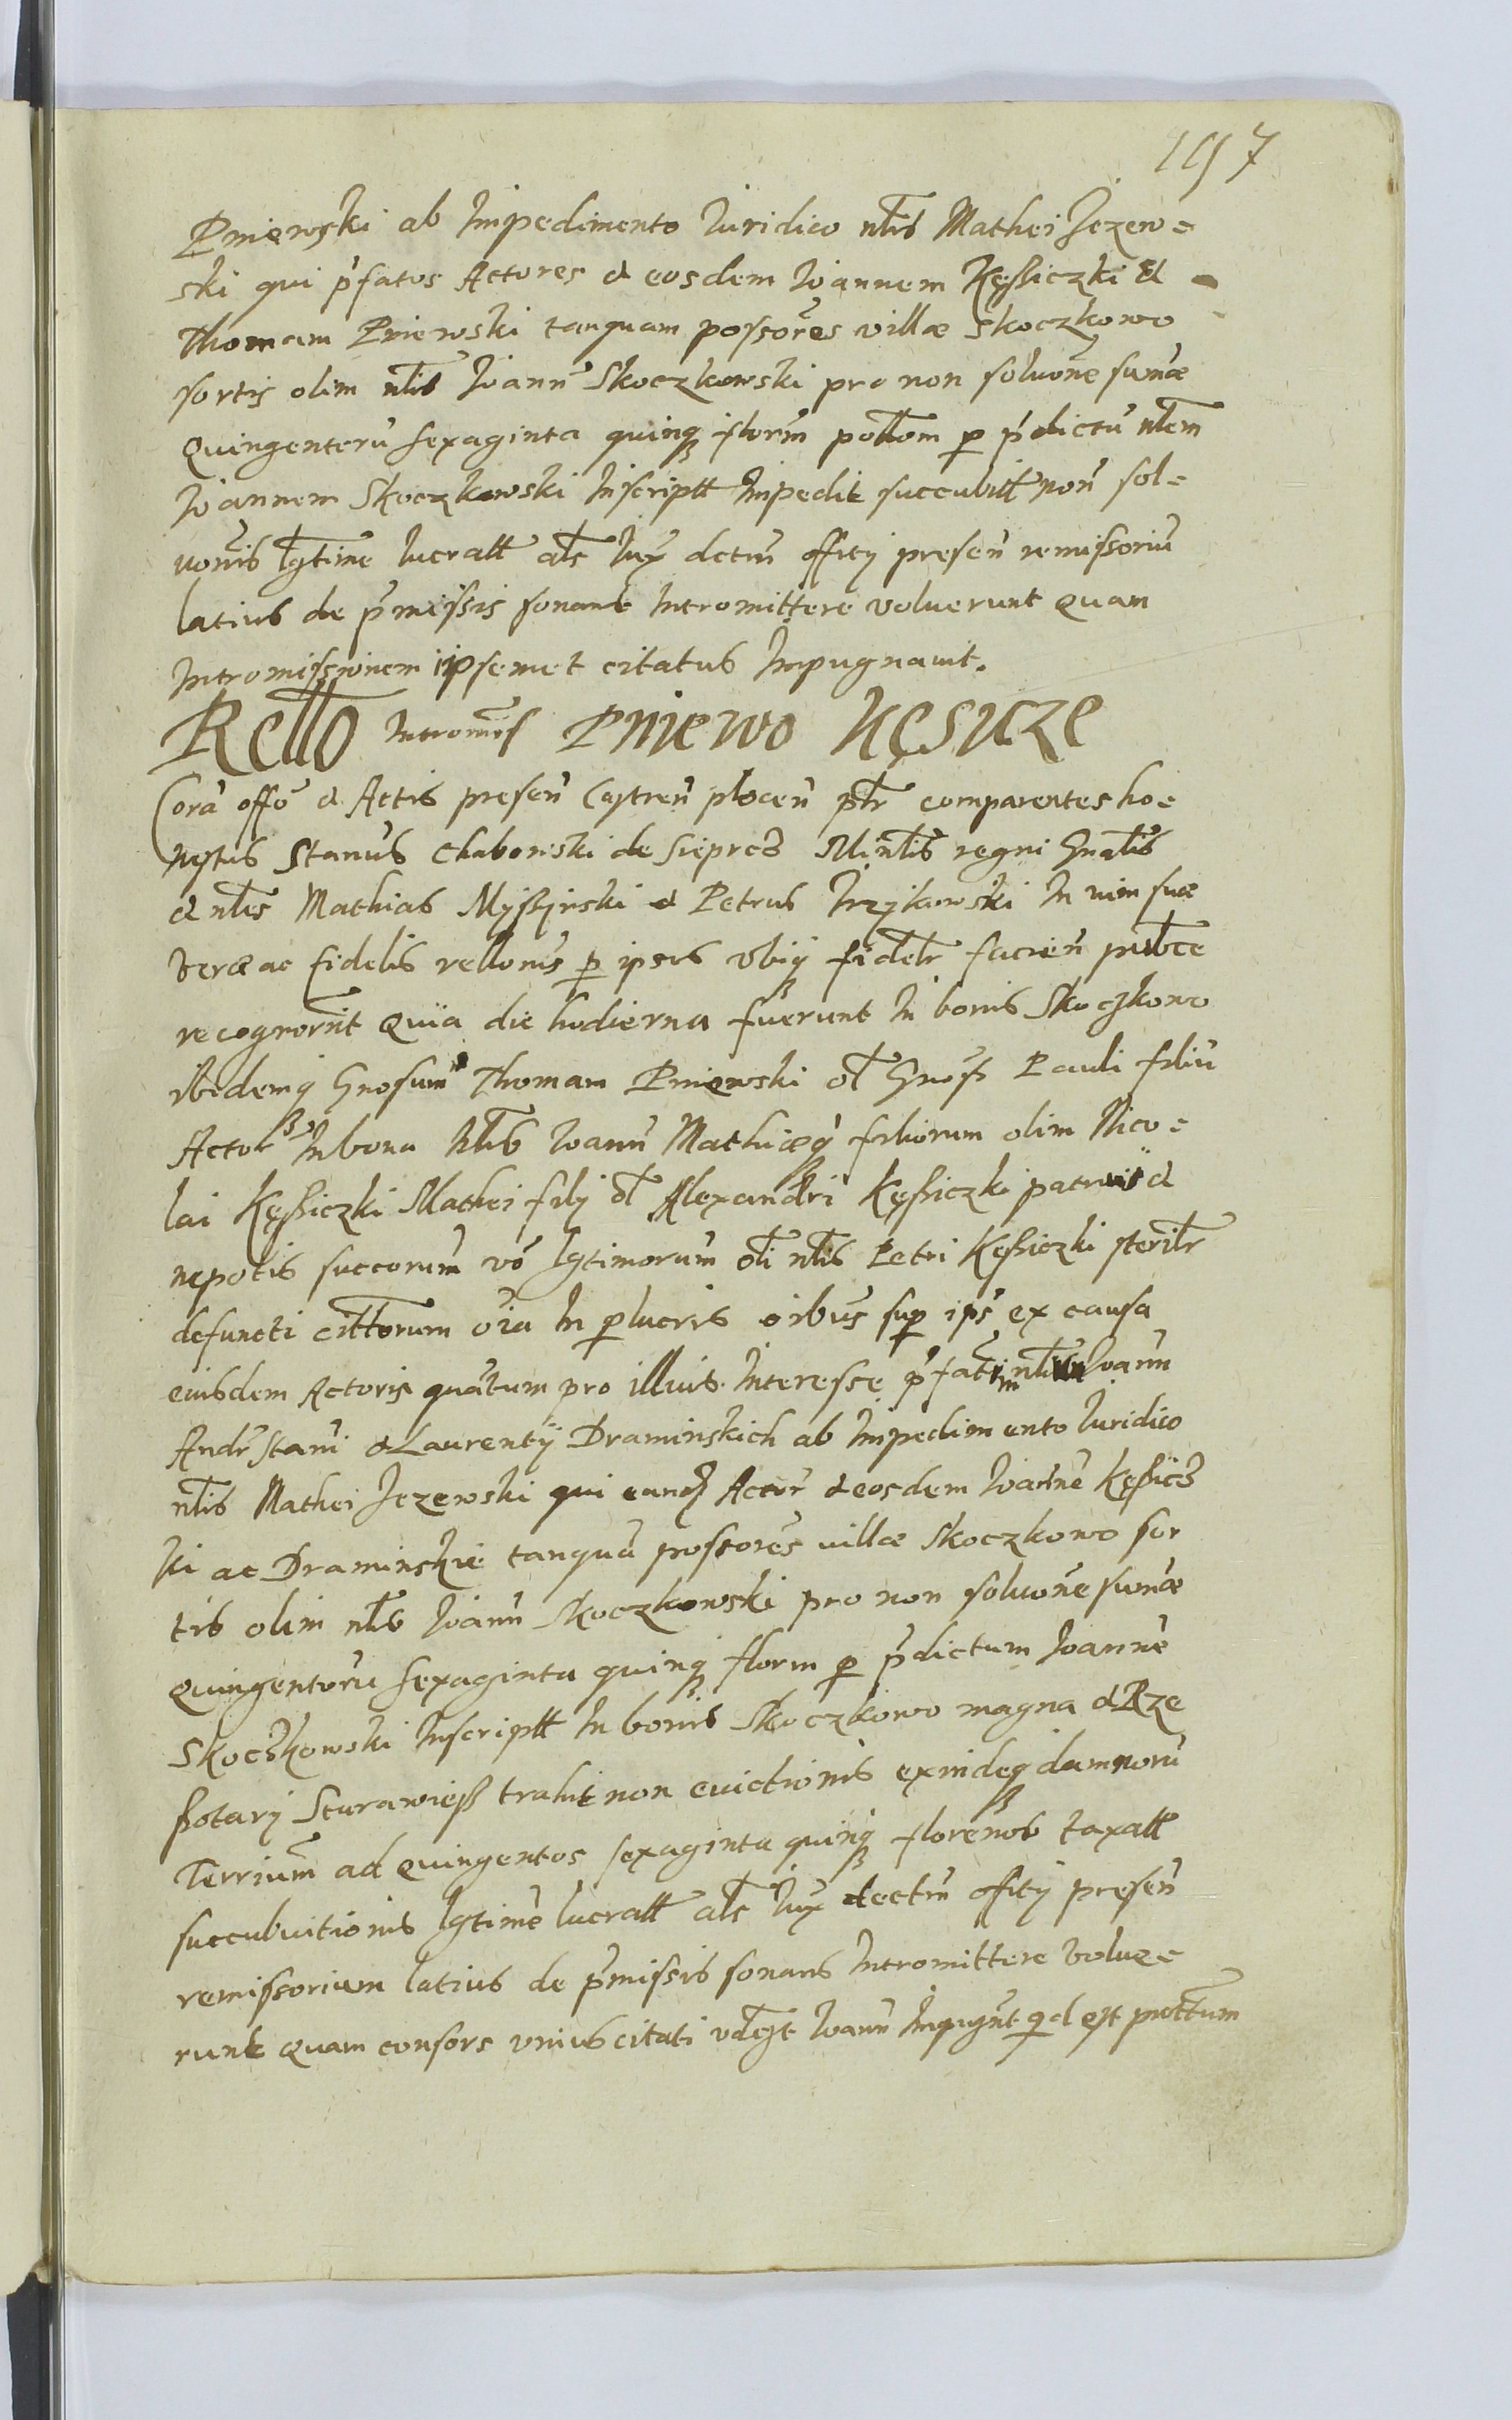 1157
Pniewski ab Impedimento Iuridico nlis Mathei Jezew=
ski qui pfatos Actores et eosdem Ioannem Kęssiczki et
Thomam Pniewski tanquam possores villæ Skoczkowo
sortis olim nlis Ioann Skoczkowski pro non soluone sumæ
Quingenteru sexaginta quinq florm pollom p pdictu nlem
Ioannem Skoczkowski Inscriptt Impedit succubitt non sol=
uonis lgtime lucratt als Iux dctm offity presen remissoriu
latius de pmissis sonans Intromittere voluerunt Quam
Intromissionem ipsemet citatus Impugnauit.
Rello Intromis Pniewo Kęsicze
Cora offo et Actis presen Castren plocen ptr comparentes ho=
nestus Stanus Chabowski de Sieprcz Minlis regni Gnalis
et nles Mathias Myssyński et Petrus Irzykowski In vim suæ
veræ ac fidelis rellonis p ipsos vbiq fidelr facien publce
recognornt Quia die hodierna fuerunt In bonis Skoczkowo
ibidemq Gnosum Thomam Pniewski ol Gnosi Pauli filiu
Actor In bona Nlis Ioann Mathiæq filiorum olim Nico=
lai Kęssiczki Mathei fily ol Alexandri Kęssiczki patruis et
nepotis succorum vo lgtimorum oli nlis Petri Kęssiczki sterilr
defuncti cittorum oia In plucris oibus sup ips ex causa
eiusdem Actoris quatum pro illius Interesse pfatim nlium Ioann
Andr Stani et Laurentij Draminskich ab Impedimento Iuridico
nlis Mathei Jezewski qui eund Actor et eosdem Ioanne Kęssicz
ki ac Draminskie tanqua possores villæ Skoczkowo sor
tis olim nlis Ioann Skoczkowski pro non soluone sumæ
Quingentoru sexaginta quinq florm p pdictum Ioanne
Skoczkowski Inscriptt In bonis Skoczkowo magna et Rze
ssotary Starawiess trahit non euictionis exindeq damnoru
Terrium ad Quingentos sexaginta quinq florenos taxatt
succubuitionis lgtime lucratt als Iux dectm offity presen
remissorium latius de pmissis sonans Intromittere volue=
runt Quam consors vnius citati vdlgt Ioann Impugnt qd est